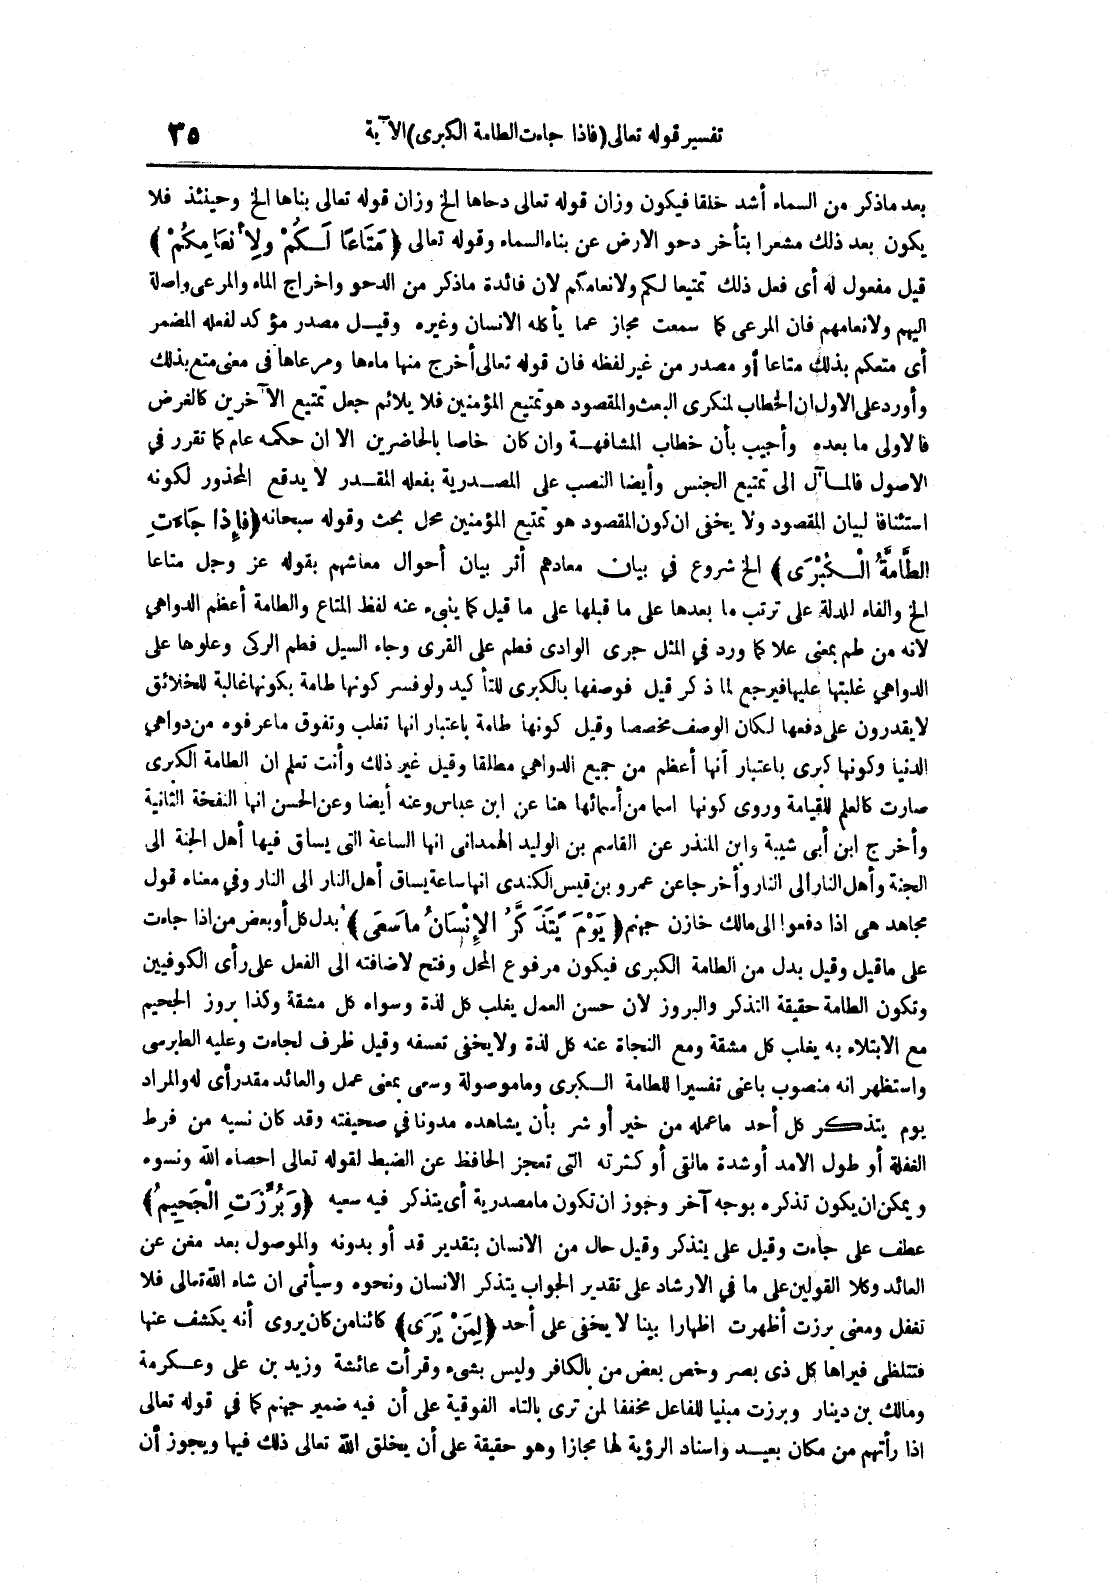 تفسير قوله تعالى (فاذا جاءت الطامة الكبرى) الآية ٣٥
بعد ماذكر من السماء أشد خلقا فيكون وزان قوله تعالى دحاها الخ وزان قوله تعالى بناها الخ وحينئذ فلا
يكون بعد ذلك مشعرا بتأخر دحو الارض عن بناء السماء وقوله تعالى ﴿مَتَاعًا لَـكُمْ وِلأَنعَامِكُمْ﴾
قيل مفعول له أى فعل ذلك تمتيعا لكم ولانعامكم لان فائدة ماذكر من الدحو واخراج الماء والمرعى واصلة
اليهم ولانعامهم فان المرعى كما سمعت مجاز عما يأكله الانسان وغيره وقيـل مصدر مؤكد لفعله المضمر
أى متعكم بذلك متاعا أو مصدر من غير لفظه فان قوله تعالى أخرج منها ماءها ومرعاها فى معنى متع بذلك
وأورد على الاول ان الخطاب لمنكرى البعث والمقصود هو تمتيع المؤمنين فلا يلائم جعل تمتيع الآخرين كالغرض
فالاولى ما بعده وأجيب بأن خطاب المشافهـة وان كان خاصا بالحاضرين الا ان حكمه عام كما تقرر في
الاصول فالمـآل الى تمتيع الجنس وأيضا النصب على المصـدرية بفعله المقـدر لا يدفع المحذور لكونه
استئنافا لبيان المقصود ولا يخفى ان كون المقصود هو تمتيع المؤمنين محل بحث وقوله سبحانه ﴿فإِذَا جَاءَتِ
الطَّامَّةُ الْـكُبْرَى﴾ الخ شروع في بيان معادهم أثر بيان أحوال معاشهم بقوله عز وجل متاعا
الخ والفاء للدلة على ترتب ما بعدها على ما قبلها على ما قيل كما ينبىء عنه لفظ المتاع والطامة أعظم الدواهي
لانه من طم بمعنى علا كما ورد في المثل جرى الوادى فطم على القرى وجاء السيل فطم الركى وعلوها على
الدواهي غلبتها عليها فيرجع لما ذكر قيل فوصفها بالكبرى للتأكيد ولو فسر كونها طامة بكونها غالبة للخلائق
لا يقدرون على دفعها لكان الوصف مخصصا وقيل كونها طامة باعتبار انها تغلب وتفوق ماعرفوه من دواهي
الدنيا وكونها كبرى باعتبار أنها أعظم من جميع الدواهي مطلقا وقيل غير ذلك وأنت تعلم ان الطامة الكبرى
صارت كالعلم للقيامة وروى كونها اسما من أسمائها هنا عن ابن عباس وعنه أيضا وعن الحسن انها النفخة الثانية
وأخرج ابن أبى شيبة وابن المنذر عن القاسم بن الوليد الهمدانى انها الساعة التى يساق فيها أهل الجنة الى
الجنة وأهل النار الى النار وأخرجا عن عمرو بن قيس الكندى انها ساعة يساق أهل النار الى النار وفي معناه قول
مجاهد هى اذا دفعوا الى مالك خازن جهنم ﴿يَوْمَ يَتَذَكَّرُ الإِنْسَانُ ماسَعَى﴾ بدل كل أو بعض من اذا جاءت
على ماقيل وقيل بدل من الطامة الكبرى فيكون مرفوع المحل وفتح لاضافته الى الفعل على رأى الكوفيين
وتكون الطامة حقيقة التذكر والبروز لان حسن العمل يغلب كل لذة وسواه كل مشقة وكذا بروز الجحيم
مع الابتلاء به يغلب كل مشقة ومع النجاة عنه كل لذة ولا يخفى تعسفه وقيل ظرف لجاءت وعليه الطبرسى
واستظهر انه منصوب باعنى تفسيرا للطامة الـكبرى وما موصولة وسعى بمعنى عمل والعائد مقدر أى له والمراد
يوم يتذكـر كل أحد ماعمله من خير أو شر بأن يشاهده مدونا في صحيفته وقد كان نسيه من فرط
الغفلة أو طول الامد أو شدة مالقى أو كثرته التى تعجز الحافظ عن الضبط لقوله تعالى احصاه الله ونسوه
ويمكن ان يكون تذكره بوجه آخر وجوز ان تكون ما مصدرية أى يتذكر فيه سعيه ﴿وَبُرِّزَتِ الْجَحِيمُ﴾
عطف على جاءت وقيل على يتذكر وقيل حال من الانسان بتقدير قد أو بدونه والموصول بعد مغن عن
العائد وكلا القولين على ما في الارشاد على تقدير الجواب يتذكر الانسان ونحوه وسيأتى ان شاء الله تعالى فلا
تغفل ومعنى برزت أظهرت اظهارا بينا لا يخفى على أحد ﴿لِمَنْ يَرَى﴾ كائنا من كان يروى أنه يكشف عنها
فتتلظى فيراها كل ذى بصر وخص بعض من بالكافر وليس بشىء وقرأت عائشة وزيد بن على وعـكرمة
ومالك بن دينار وبرزت مبنيا للفاعل مخففا لمن ترى بالتاء الفوقية على أن فيه ضمير جهنم كما في قوله تعالى
اذا رأتهم من مكان بعيـد واسناد الرؤية لها مجازا وهو حقيقة على أن يخلق الله تعالى ذلك فيها ويجوز أن